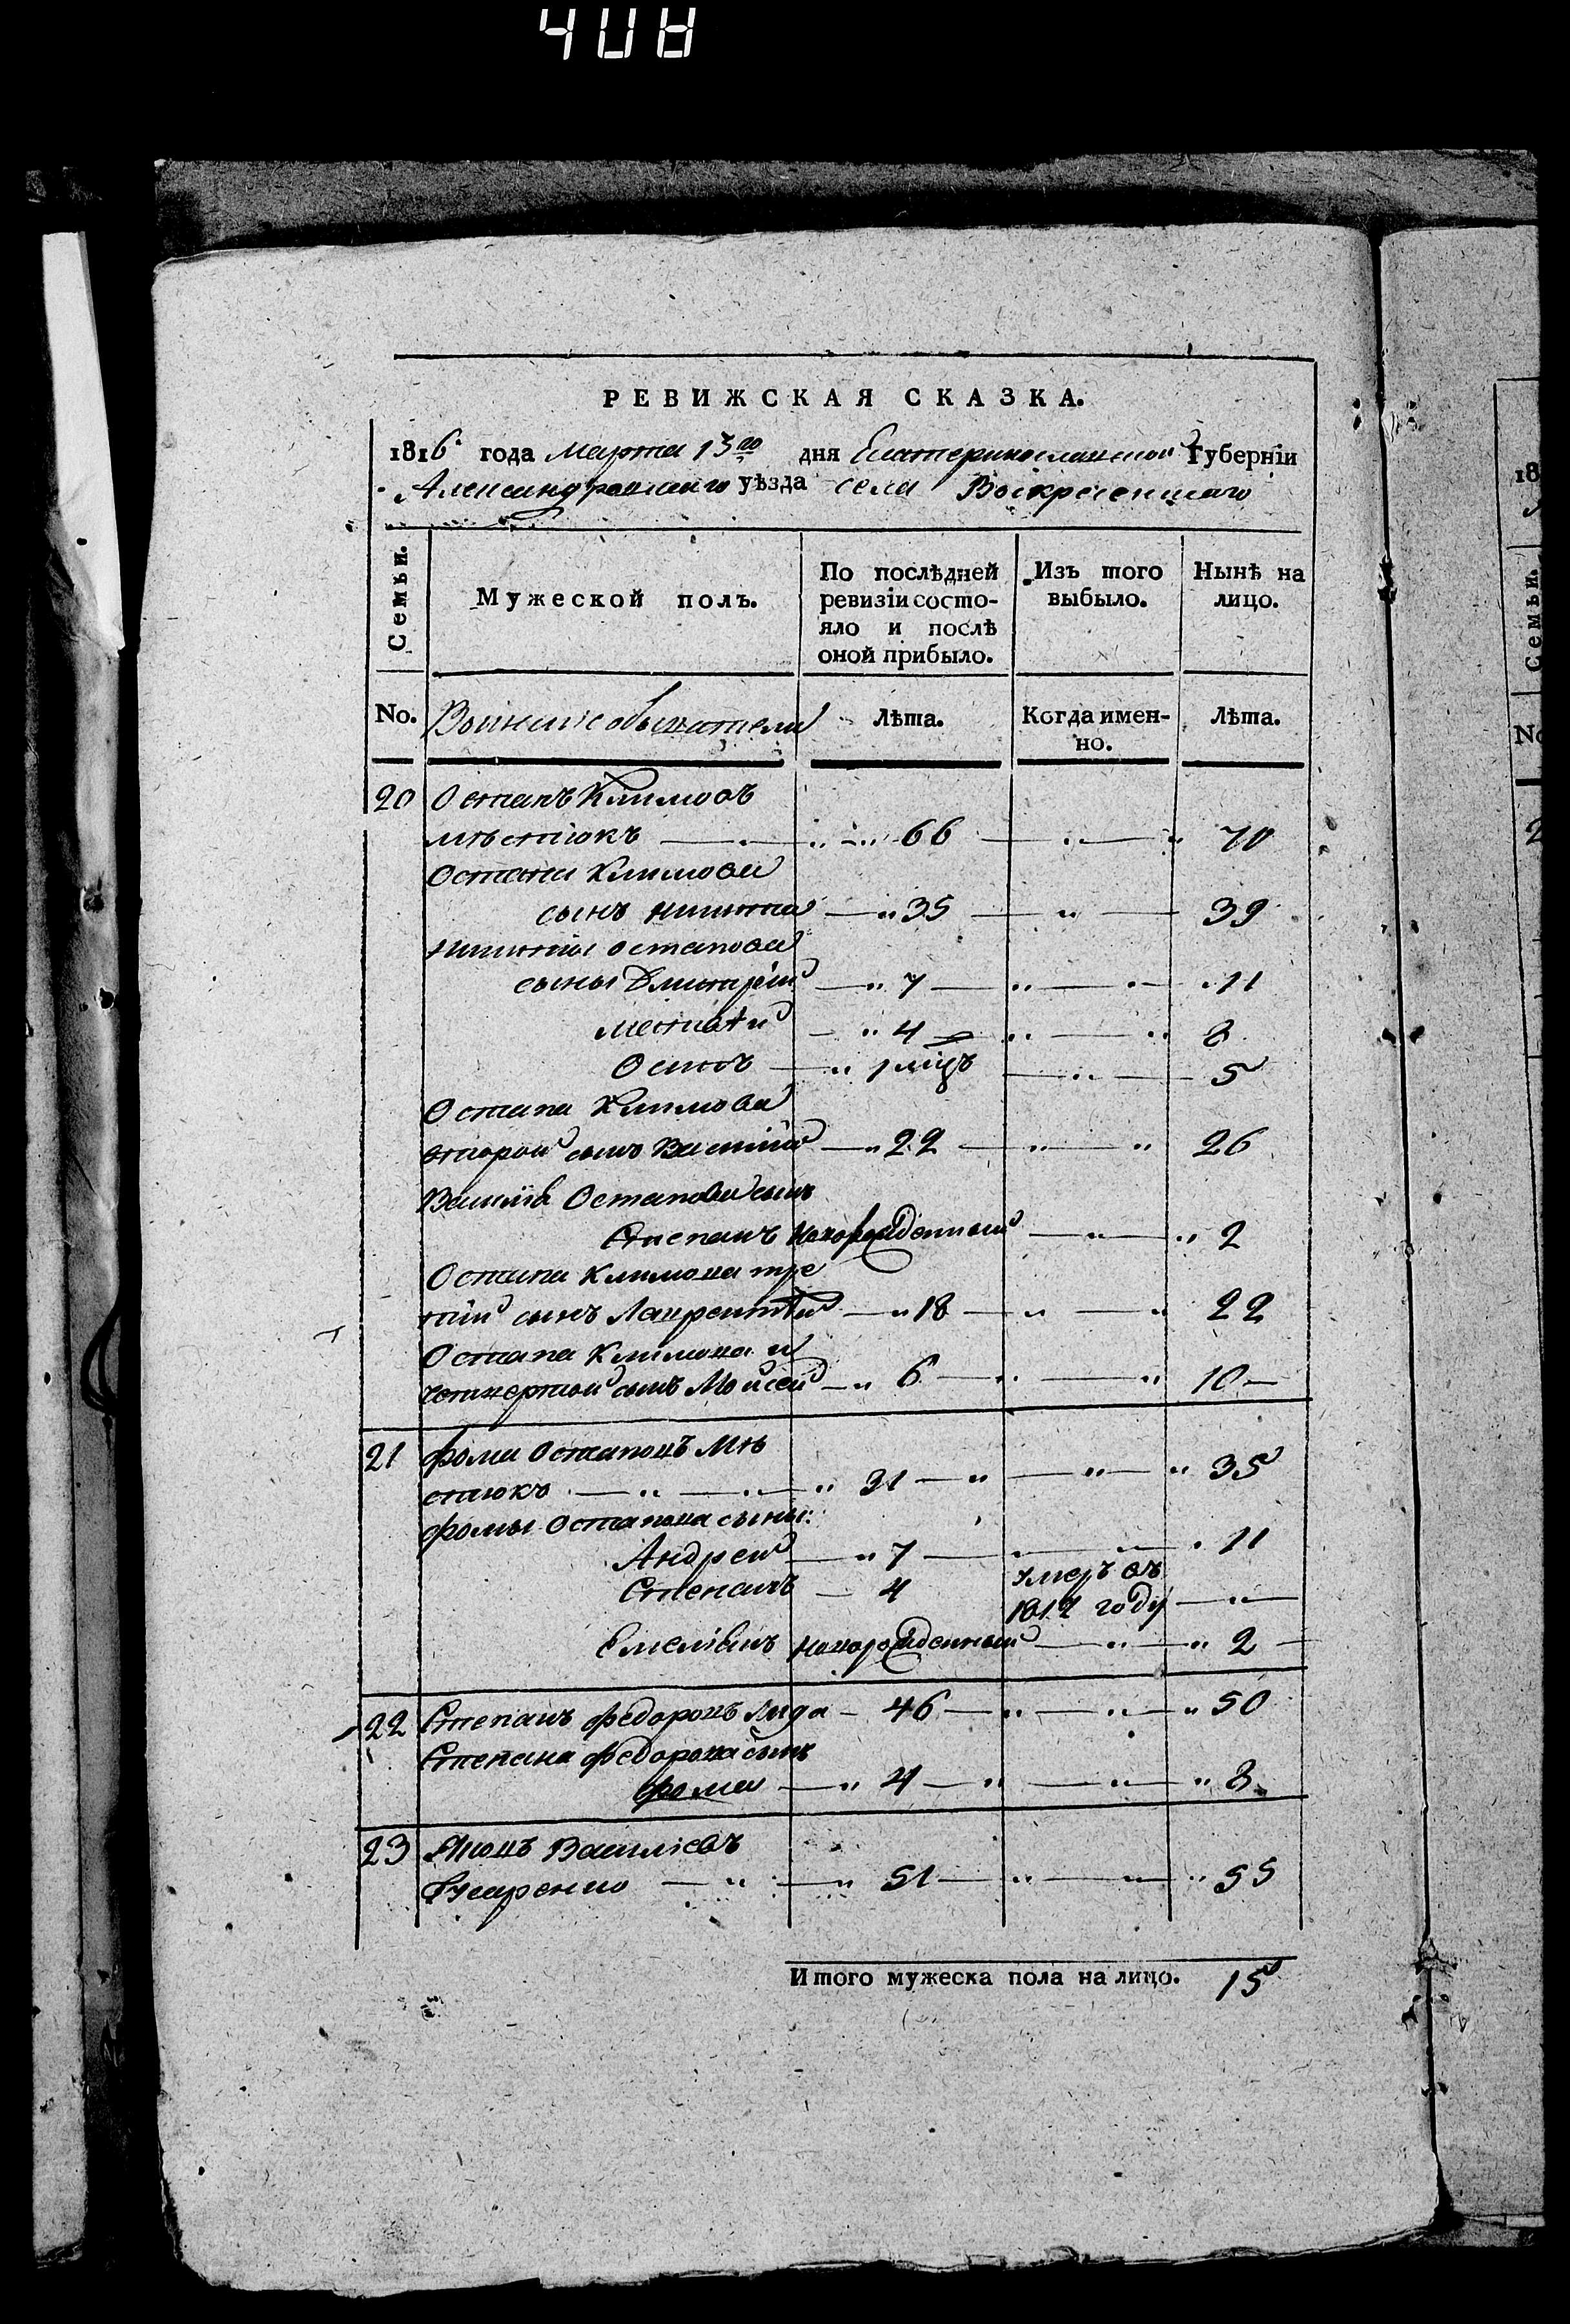 408
РЕВИЖСКАЯ СКАЗКА.
1816 года Марта 13го дня Екатеринославской Губерніи
Александровскаго уѣзда села Воскресенскаго
Семьи.
Мужеской полъ.
По послѣдней ревизіи состо-
яло и послѣ
оной прибыло.
Изъ того
выбыло.
Нынѣ на
лицо.
No. Воинскіе обыватели Лѣта. Когда имен-
но. Лѣта.
20 Остапъ Климовъ
Мѣстюкъ — 66 — 70
Остапа Климова
сынъ Никита — 35 — 39
Никиты Остапова
сыны Дмитрій — 7 — 11
— 4 — 8
Осипъ — 1 мцъ — 5
Остапа Климова
второй сынъ Василій — 22 — 26
Василія Остапова сынъ
Степанъ новорожденный — 2
Остапа Климова тре
тій сынъ Лаврентій — 18 — 22
Остапа Климова
четвертой сынъ Мойсей — 6 — 10 —
21 Фома Остаповъ Мѣ
стюкъ — 31 — 35
Фомы Остапова сыны:
Андрей — 7 — 11
Степанъ — 4 умеръ въ
1812 году —
Емеліянъ новорожденный — 2 —
22 Степанъ Федоровъ — 46 — 50
Степана Федорова сынъ
Фома — 4 — 8
23 Яковъ Василіевъ
— 51 — 55
Итого мужеска пола на лицо. 15